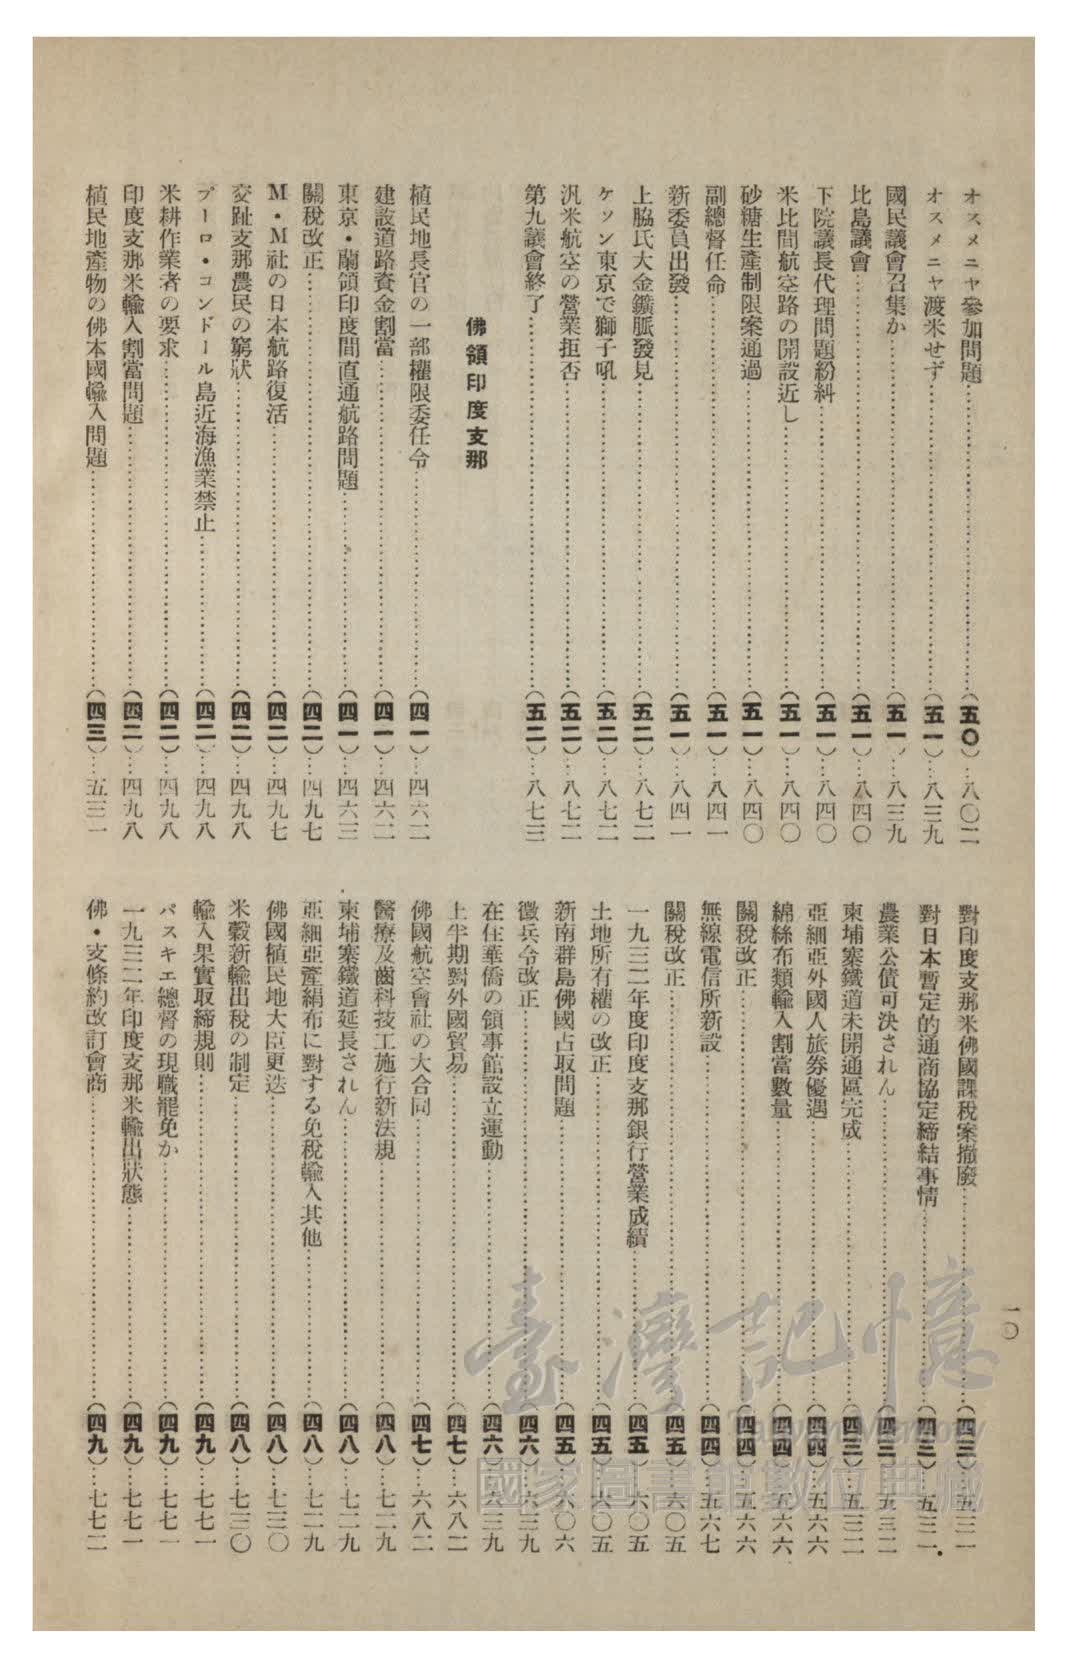 オスメニヤ參加問題……(五〇)…八〇二
オスメニヤ渡米せず……(五一)…八三九
國民議會召集か……(五一)…八三九
比島議會……(五一)…八四〇
下院議長代理問題紛糾……(五一)…八四〇
米比間航空路の開設近し……(五一)…八四〇
砂糖生產制限案通過……(五一)…八四〇
副總督任命……(五一)…八四一
新委員出發……(五一)…八四一
上脇氏大金鑛脈發見……(五二)…八七二
ケソン東京で獅子吼……(五二)…八七二
汎米航空の營業拒否……(五二)…八七二
第九議會終了……(五二)…八七三
佛領印度支那
植民地長官の一部權限委任令……(四一)…四六二
建設道路資金割當……(四一)…四六二
東京・蘭領印度間直通航路問題……(四一)…四六三
關稅改正……(四二)…四九七
M・M社の日本航路復活……(四二)…四九七
交趾支那農民の窮狀……(四二)…四九八
プーロ・コンドール島近海漁業禁止……(四二)…四九八
米耕作業者の要求……(四二)…四九八
印度支那米輸入割當問題……(四二)…四九八
植民地產物の佛本國輸入問題……(四三)…五三一
對印度支那米佛國課稅案撤廢……(四三)…五三一
對日本暫定的通商協定締結事情……(四三)…五三一
農業公債可決されん……(四三)…五三二
柬埔寨鐵道未開通區完成……(四三)…五三二
亞細亞外國人旅券優遇……(四四)…五六六
綿絲布類輸入割當數量……(四四)…五六六
關稅改正……(四四)…五六六
無線電信所新設……(四四)…五六七
關稅改正……(四五)…六〇五
一九三二年度印度支那銀行營業成績……(四五)…六〇五
土地所有權の改正……(四五)…六〇五
新南群島佛國占取問題……(四五)…六〇六
徵兵令改正……(四六)…六三九
在住華僑の領事館設立運動……(四六)…六三九
上半期對外國貿易……(四七)…六八二
佛國航空會社の大合同……(四七)…六八二
醫療及齒科技工施行新法規……(四八)…七二九
柬埔寨鐵道延長されん……(四八)…七二九
亞細亞產絹布に對する免稅輸入其他……(四八)…七二九
佛國植民地大臣更迭……(四八)…七三〇
米穀新輸出稅の制定……(四八)…七三〇
輸入果實取締規則……(四九)…七七一
パスキエ總督の現職罷免か……(四九)…七七一
一九三二年印度支那米輸出狀態……(四九)…七七一
佛・支條約改訂會商……(四九)…七七二
一〇
臺灣記憶
Taiwan Memory
國家圖書館數位典藏